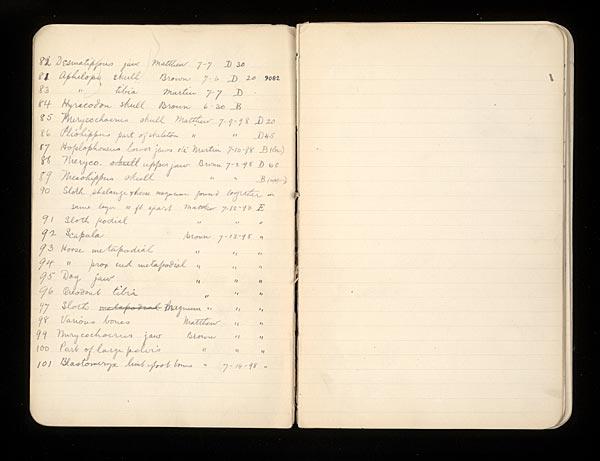 82 Desmatippus jaw Matthew 7-7 D 30
81 Aphelops skull Brown 7-6 D 20 9082
83 " tibia Martin 7-7 D
84 Hyracodon skull Brown 6-30 B
85 Merycochoerus skull Matthew 7-9-98 D 20
86 Pliohippus part of skeleton " " D 45
87 Hoplophoneus lower jaws Martin 7-10-98 B
88 Meryco. skull upper jaw Brown 7-9-98 D 60
89 Mesohippus skull " " B
90 Sloth phalange & horse magnum found together in
same layer ft apart Matthew 7-12-98 E
91 Sloth podial " " "
92 Scapula Brown 7-13-98 "
93 Horse metapodial " " "
94 " prox end metapodial " " "
95 Dog jaw " " "
96 Creodont tibia " " "
97 Sloth metapodial Magnum " " "
98 Various bones Matthew " "
99 Merycochoerus jaw Brown " "
100 Part of large pelvis " " "
101 Blastomeryx limb & foot bones " 7-14-98 "
1